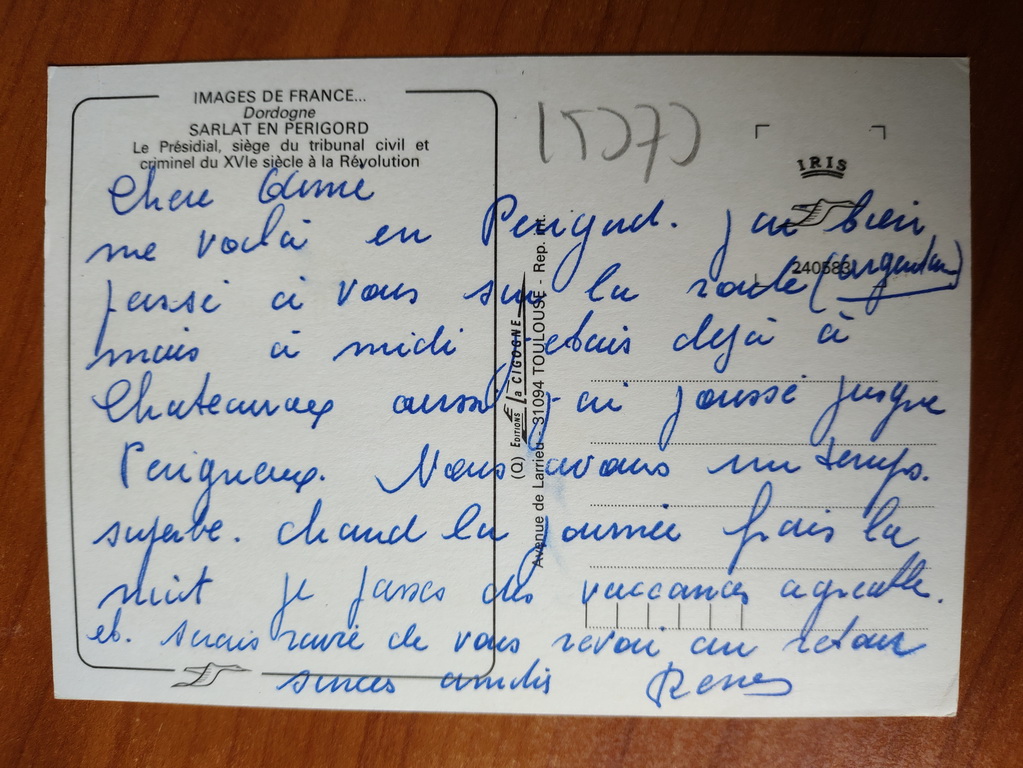 IMAGES DE FRANCE...
Dordogne
SARLAT EN PERIGORD
Le Présidial, siège du tribunal civil et
criminel du XVIe siècle à la Révolution
IRIS
240583
(Q) EDITIONS La CIGOGNE
Avenue de Larrieu - 31094 TOULOUSE - Rep. int.
Chere
me voilà en Perigord. j'ai bien
passé à vous sur la route (argentan)
mais à midi j'etais dejà à
Chateauroux aussi j-ai poussé jusque
Perigueux. Nous avons un temps.
superbe. chaud la journée frais la
nuit je passes des vaccances agreable.
et. serais ravie de vous revoir au retour
amitis